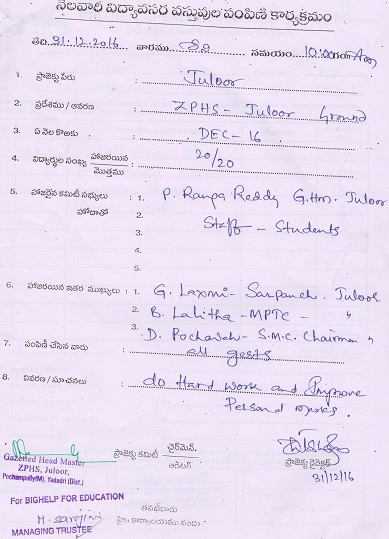 నెలవారీ విద్యావసర వస్తువుల పంపిణీ కార్యక్రమం
తేది 31.12.2016 వారము శని సమయం 10:00 గం Am
1. ప్రాజెక్టు పేరు : Juloor
2. ప్రదేశము / ఆవరణ : ZPHS - Juloor Ground
3. ఏ నెల కొఱకు : DEC - 16
4. విద్యార్థుల సంఖ్య హాజరయిన / మొత్తము : 20/20
5. హాజరైన కమిటీ సభ్యులు : 1. P. Ranga Reddy G.Hm. Juloor
హోదాతో 2. Staff - Students
3.
4.
5.
6. హాజరయిన ఇతర ముఖ్యులు : 1. G. Laxmi - Sarpanch. Juloor
2. B. Lalitha - MPTC - "
3. D. Pochaiah - S.M.C. Chairman "
7. పంపిణీ చేసిన వారు : all gests
8. వివరణ / సూచనలు : do Hard work and Improve
Personal works.
ప్రాజెక్టు కమిటీ చైర్‌మెన్,
ఆడిటర్
ప్రాజెక్టు డైరెక్టర్
31/12/16
Gazetted Head Master
ZPHS, Juloor,
Pochampally(M), Yadadri (Dist.)
For BIGHELP FOR EDUCATION
M. Sarojini
MANAGING TRUSTEE